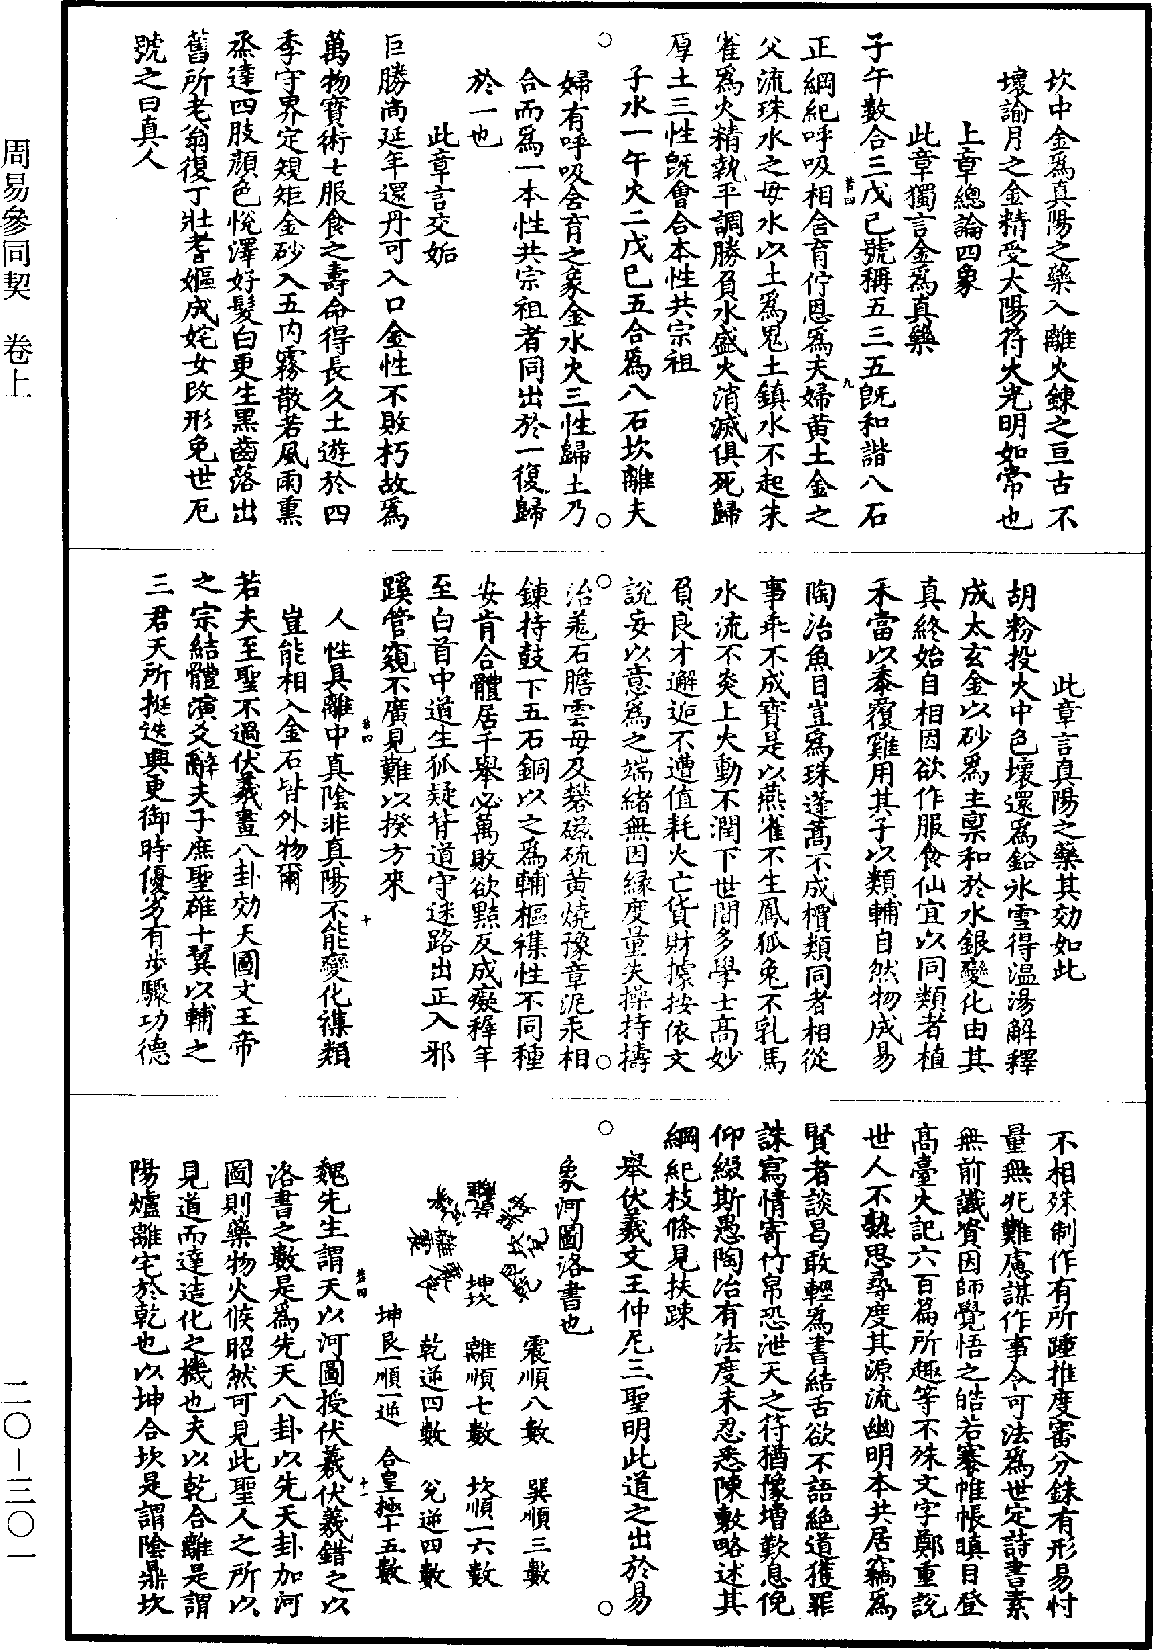 周易參同契　卷上
二〇—三〇一
坎中金爲真陽之藥入離火鍊之亘古不
壞諭月之金精受太陽符火光明如常也
上章總論四象
此章獨言金爲真藥
子午數合三戊己號稱五三五旣和諧八石
正綱紀呼吸相含育佇恩爲夫婦黃土金之
父流珠水之母水以土爲鬼土鎮水不起朱
雀爲火精執平調勝負水盛火消滅俱死歸
厚土三性旣會合本性共宗祖
子水一午火二戊己五合爲八石坎離夫
婦有呼吸含育之象金水火三性歸土乃
合而爲一本性共宗祖者同出於一復歸
於一也
此章言交姤
巨勝尚延年還丹可入口金性不敗朽故爲
萬物寶術士服食之壽命得長久土遊於四
季守界定規矩金砂入五內霧散若風雨熏
烝達四肢顔色悅澤好髮白更生黑齒落出
舊所老翁復丁壯耆嫗成姹女改形免世厄
號之曰真人
第四
九
此章言真陽之藥其効如此
胡粉投火中色壞還爲鉛氷雪得溫湯解釋
成太玄金以砂爲主稟和於水銀變化由其
真終始自相因欲作服食仙宜以同類者植
禾當以黍覆雞用其子以類輔自然物成易
陶冶魚目豈爲珠蓬蒿不成檟類同者相從
事乖不成寶是以燕雀不生鳳狐兔不乳馬
水流不炎上火動不潤下世間多學士高妙
負良才邂逅不遭值耗火亡貨財據按依文
說妄以意爲之端緒無因緣度量失操持擣
治羗石膽雲母及礬磁硫黃燒豫章泥汞相
鍊持鼓下五石銅以之爲輔樞襍性不同種
安肯合體居千舉必萬敗欲黠反成癡稺年
至白首中道生狐疑背道守迷路出正入邪
蹊管窺不廣見難以揆方來
人性具離中真陰非真陽不能變化襍類
豈能相入金石皆外物爾
若夫至聖不過伏羲畫八卦効天圖文王帝
之宗結體演爻辭夫子庶聖雄十翼以輔之
三君天所挺迭興更御時優劣有步驟功德
第四
十
不相殊制作有所踵推度審分銖有形易忖
量無兆難慮謀作事令可法爲世定詩書素
無前識資因師覺悟之皓若褰帷帳瞋目登
高臺火記六百篇所趣等不殊文字鄭重說
世人不熟思尋度其源流幽明本共居竊爲
賢者談曷敢輕爲書結舌欲不語絶道獲罪
誅寫情寄竹帛恐泄天之符猶豫增歎息俛
仰綴斯愚陶冶有法度未忍悉陳敷略述其
綱紀枝條見扶踈
舉伏羲文王仲尼三聖明此道之出於易
象河圖洛書也
震順八數　巽順三數
離順七數　坎順一六數
乾逆四數　兌逆四數
坤艮一順一逆　合皇極十五數
魏先生謂天以河圖授伏羲伏羲錯之以
洛書之數是爲先天八卦以先天卦加河
圖則藥物火候昭然可見此聖人之所以
見道而達造化之機也夫以乾合離是謂
陽爐離宅於乾也以坤合坎是謂陰鼎坎
第四
十一